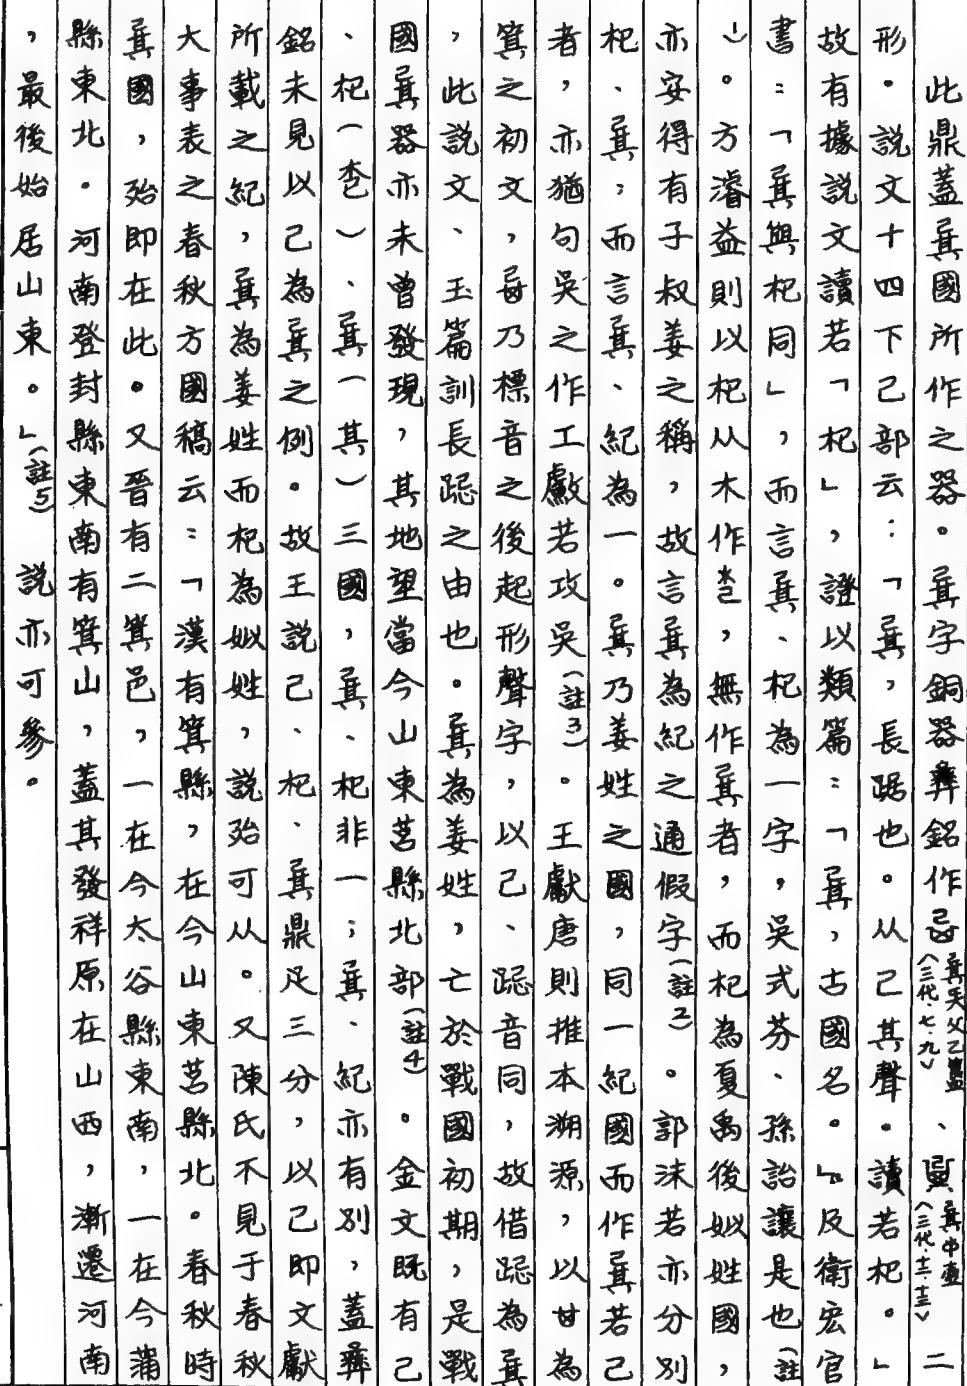 此鼎蓋㠱國所作之器。㠱字銅器彝銘作㠱父乙簋(三代‧七‧九)、㠱中壺(三代‧十二‧十三)二
形。說文十四下己部云:「㠱,長踞也。从己其聲。讀若杞。」
故有據說文讀若「杞」,證以類篇:「㠱,古國名。』及衛宏官
書:「㠱與杞同」,而言㠱、杞為一字,吳式芬、孫詒讓是也(註
1)。方濬益則以杞从木作,無作㠱者,而杞為夏禹後姒姓國,
亦安得有子叔姜之稱,故言㠱為紀之通假字(註2)。郭沫若亦分別
杞、㠱;而言㠱、紀為一。㠱乃姜姓之國,同一紀國而作㠱若己
者,亦猶句吳之作工䱷若攻吳(註3)。王獻唐則推本溯源,以甘為
箕之初文,乃標音之後起形聲字,以己、跽音同,故借跽為㠱
,此說文、玉篇訓長跽之由也。㠱為姜姓,亡於戰國初期,是戰
國㠱器亦未曾發現,其地望當今山東莒縣北部(註4)。金文既有己
、杞(䣀)、㠱(其)三國,㠱、杞非一;㠱、紀亦有別,蓋彝
銘未見以己為㠱之例。故王說己、杞、㠱鼎足三分,以己即文獻
所載之紀,㠱為姜姓而杞為姒姓,說殆可从。又陳氏不見于春秋
大事表之春秋方國稿云:「漢有箕縣,在今山東莒縣北。春秋時
㠱國,殆即在此。又晉有二箕邑,一在今太谷縣東南,一在今蒲
縣東北。河南登封縣東南有箕山,蓋其發祥原在山西,漸遷河南
,最後始居山東。」(註5)說亦可參。